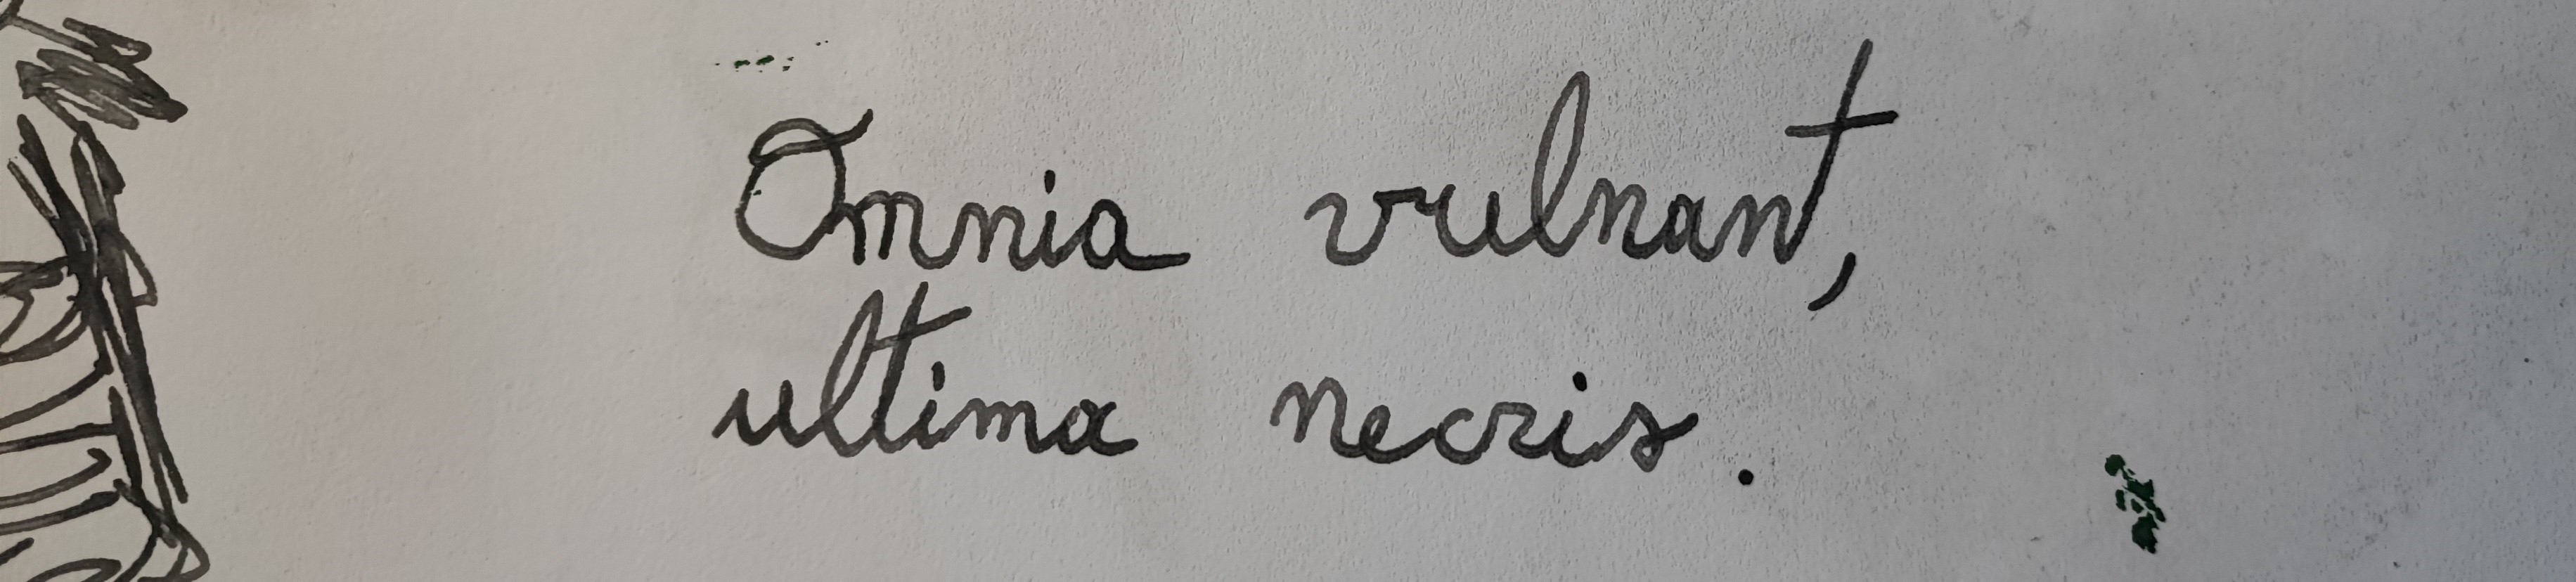 Omnia vulnant,
ultima necris.